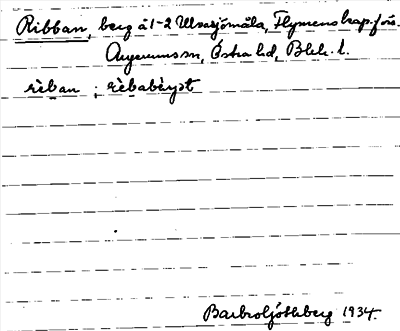 Ribban, berg å 1-2 Ulvasjömåla, Flymens kap. förs.
Augerums sn, Östra hd, Blek. l.
rèban ; rèbabèrjət
Barbro Ljöthberg 1934.